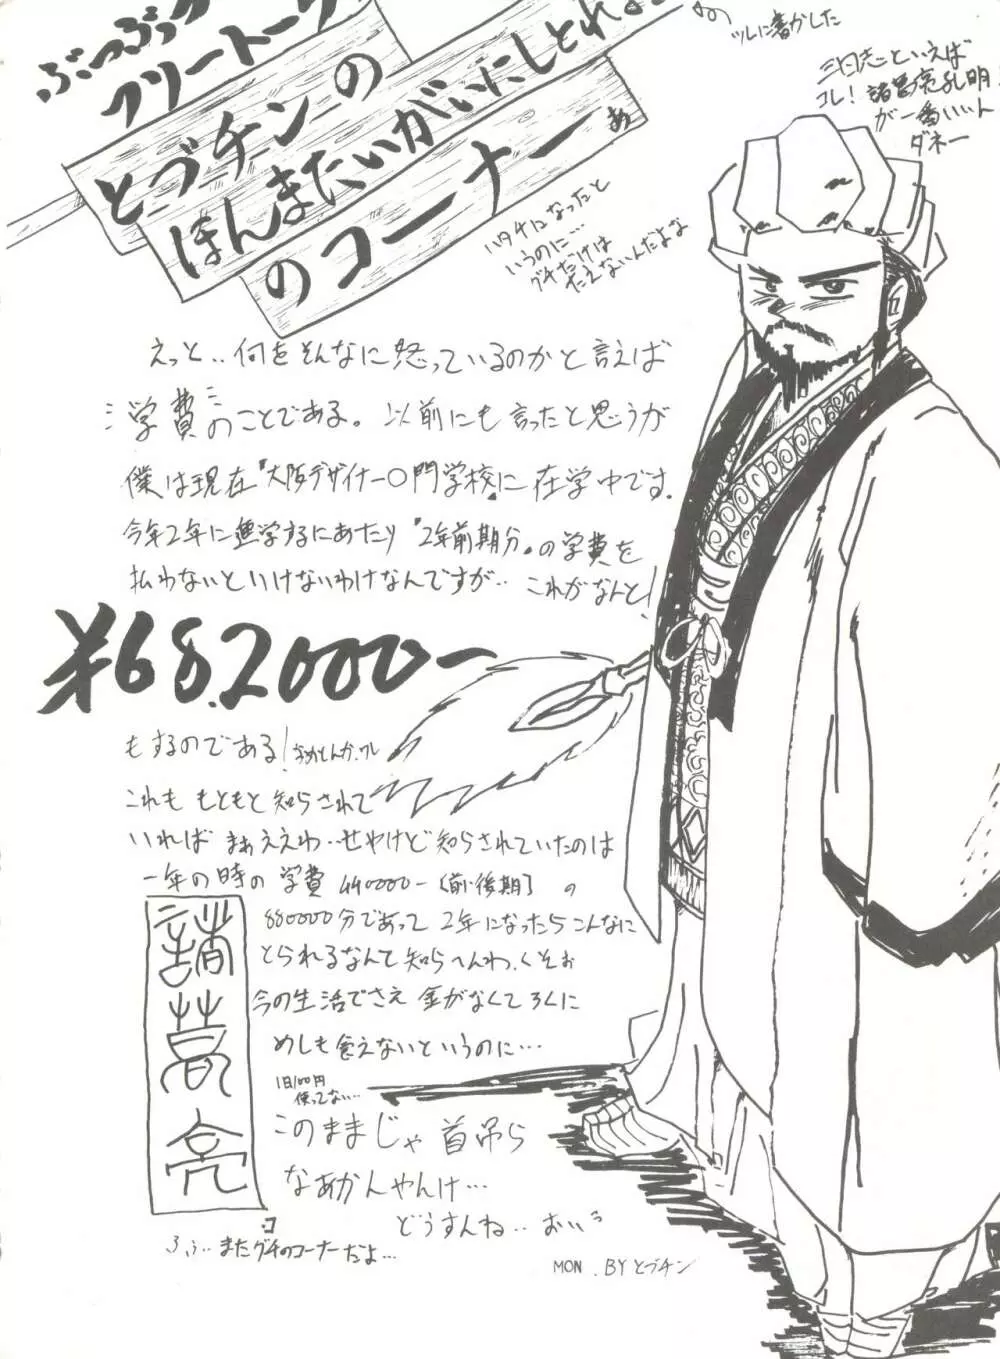 ぶつぶつ
フリートーク
とづチンの
ほんまたいがいにしとれよ
のコーナー
ツレに書かした
三国志といえば
コレ！諸葛亮孔明
が一番いいん
ダネー
ハタチになったと
いうのに…
グチだけは
たえないんだよな
えっと‥何をそんなに怒っているのかと言えば
学費のことである。以前にも言ったと思うが
僕は現在『大阪デザイナー〇門学校』に在学中です．
今年2年に進学するにあたり『2年前期分』の学費を
払わないといけないわけなんですが‥これがなんと！
¥682000ー
もするのである！
これももともと知らされて
いればまぁええわ‥せやけど知らされていたのは
一年の時の学費440000ー〔前・後期〕の
880000分であって2年になったらこんなに
とられるなんて知らへんわ．くそぉ
今の生活でさえ金がなくてろくに
めしも食えないというのに…
1日100円
使ってない…
このままじゃ首吊ら
なあかんやんけ…
どうすんね‥おいっ
諸葛亮
ふぅ‥またグチのコーナーだよ…
MON．BYとづチン